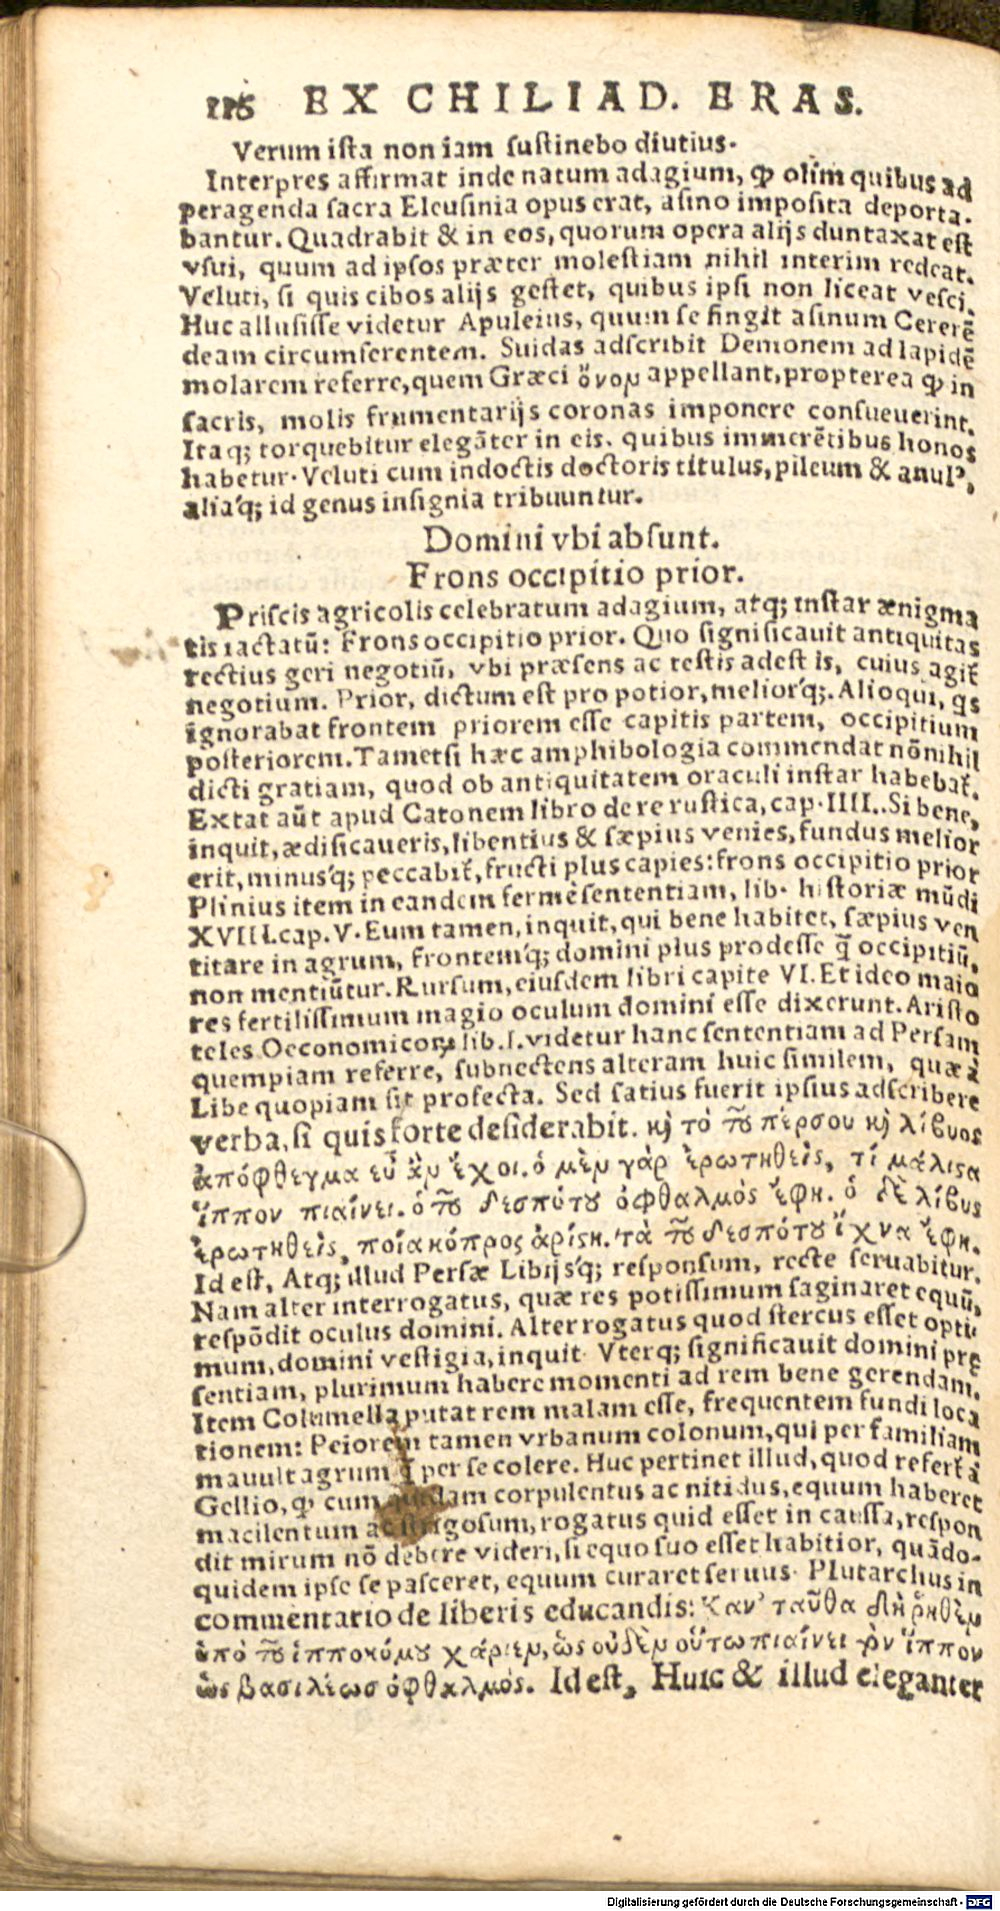 116 EX CHILIAD. ERAS.
Verum ista non iam sustinebo diutius.
Interpres affirmat inde natum adagium, ꝙ olim quibus ad
peragenda sacra Eleusinia opus erat, asino imposita deporta-
bantur. Quadrabit & in eos, quorum opera alijs duntaxat est
vsui, quum ad ipsos præter molestiam nihil interim redeat.
Veluti, si quis cibos alijs gestet, quibus ipsi non liceat vesci.
Huc allusisse videtur Apuleius, quum se fingit asinum Cererē
deam circumferentem. Suidas adscribit Demonem ad lapidē
molarem referre, quem Græci ὄνον appellant, propterea ꝙ in
sacris, molis frumentarijs coronas imponere consueuerint.
Itaq; torquebitur elegāter in eis. quibus immerētibus honos
habetur. Veluti cum indoctis doctoris titulus, pileum & anulꝰ,
aliaq́; id genus insignia tribuuntur.
Domini vbi absunt.
Frons occipitio prior.
Priscis agricolis celebratum adagium, atq; instar ænigma
tis iactatū: Frons occipitio prior. Quo significauit antiquitas
rectius geri negotiū, vbi præsens ac testis adest is, cuius agit̃
negotium. Prior, dictum est pro potior, meliorq́;. Alioqui, qs
ignorabat frontem priorem esse capitis partem, occipitium
posteriorem. Tametsi hæc amphibologia commendat nōnihil
dicti gratiam, quod ob antiquitatem oraculi instar habebat̃.
Extat aūt apud Catonem libro de re rustica, cap. IIII.. Si bene,
inquit, ædificaueris, libentius & sæpius venies, fundus melior
erit, minusq́; peccabit̃, fructi plus capies: frons occipitio prior
Plinius item in eandem fermè sententiam, lib. historiæ mūdi
XVIII. cap. V. Eum tamen, inquit, qui bene habitet, sæpius ven
titare in agrum, frontemq́; domini plus prodesse q̄ occipitiū,
non mentiūtur. Rursum, eiusdem libri capite VI. Et ideo maio
res fertilissimum magio oculum domini esse dixerunt. Aristo
teles Oeconomicoꝝ lib. I. videtur hanc sententiam ad Persam
quempiam referre, subnectens alteram huic similem, quæ à
Libe quopiam sit profecta. Sed satius fuerit ipsius adscribere
verba, si quis forte desiderabit. κỳ τὸ τοῦ πέρσου κỳ λίβυος
ἀπόφθεγμα εὖ ἂν ἔχοι. ὁ μὲν γὰρ ἐρωτηθεὶς, τί μάλιστα
ἵππον πιαίνει. ὁ τοῦ δεσπότου ὀφθαλμὸς ἔφη. ὁ δὲ λίβυς
ἐρωτηθεὶς, ποία κόπρος ἀρίστη. τὰ τοῦ δεσπότου ἴχνα ἔφη.
Id est, Atq; illud Persæ Libijsq́; responsum, recte seruabitur.
Nam alter interrogatus, quæ res potissimum saginaret equū,
respōdit oculus domini. Alter rogatus quod stercus esset opti
mum, domini vestigia, inquit. Vterq; significauit domini prę
sentiam, plurimum habere momenti ad rem bene gerendam.
Item Columella putat rem malam esse, frequentem fundi loca
tionem: Peiorem tamen vrbanum colonum, qui per familiam
mauult agrum q̄ per se colere. Huc pertinet illud, quod refert̃ à
Gellio, ꝙ cum quidam corpulentus ac nitidus, equum haberet
macilentum ac strigosum, rogatus quid esset in caussa, respon
dit mirum nō debere videri, si equo suo esset habitior, quādo-
quidem ipse se pasceret, equum curaret seruus. Plutarchus in
commentario de liberis educandis: Κἀν ταῦθα δὴ ῥηθὲν
ὑπὸ τοῦ ἱπποκόμου χάριεν, ὡς οὐδὲν οὕτω πιαίνει τὸν ἵππον
ὡς βασιλέως ὀφθαλμός. Id est, Huic & illud eleganter